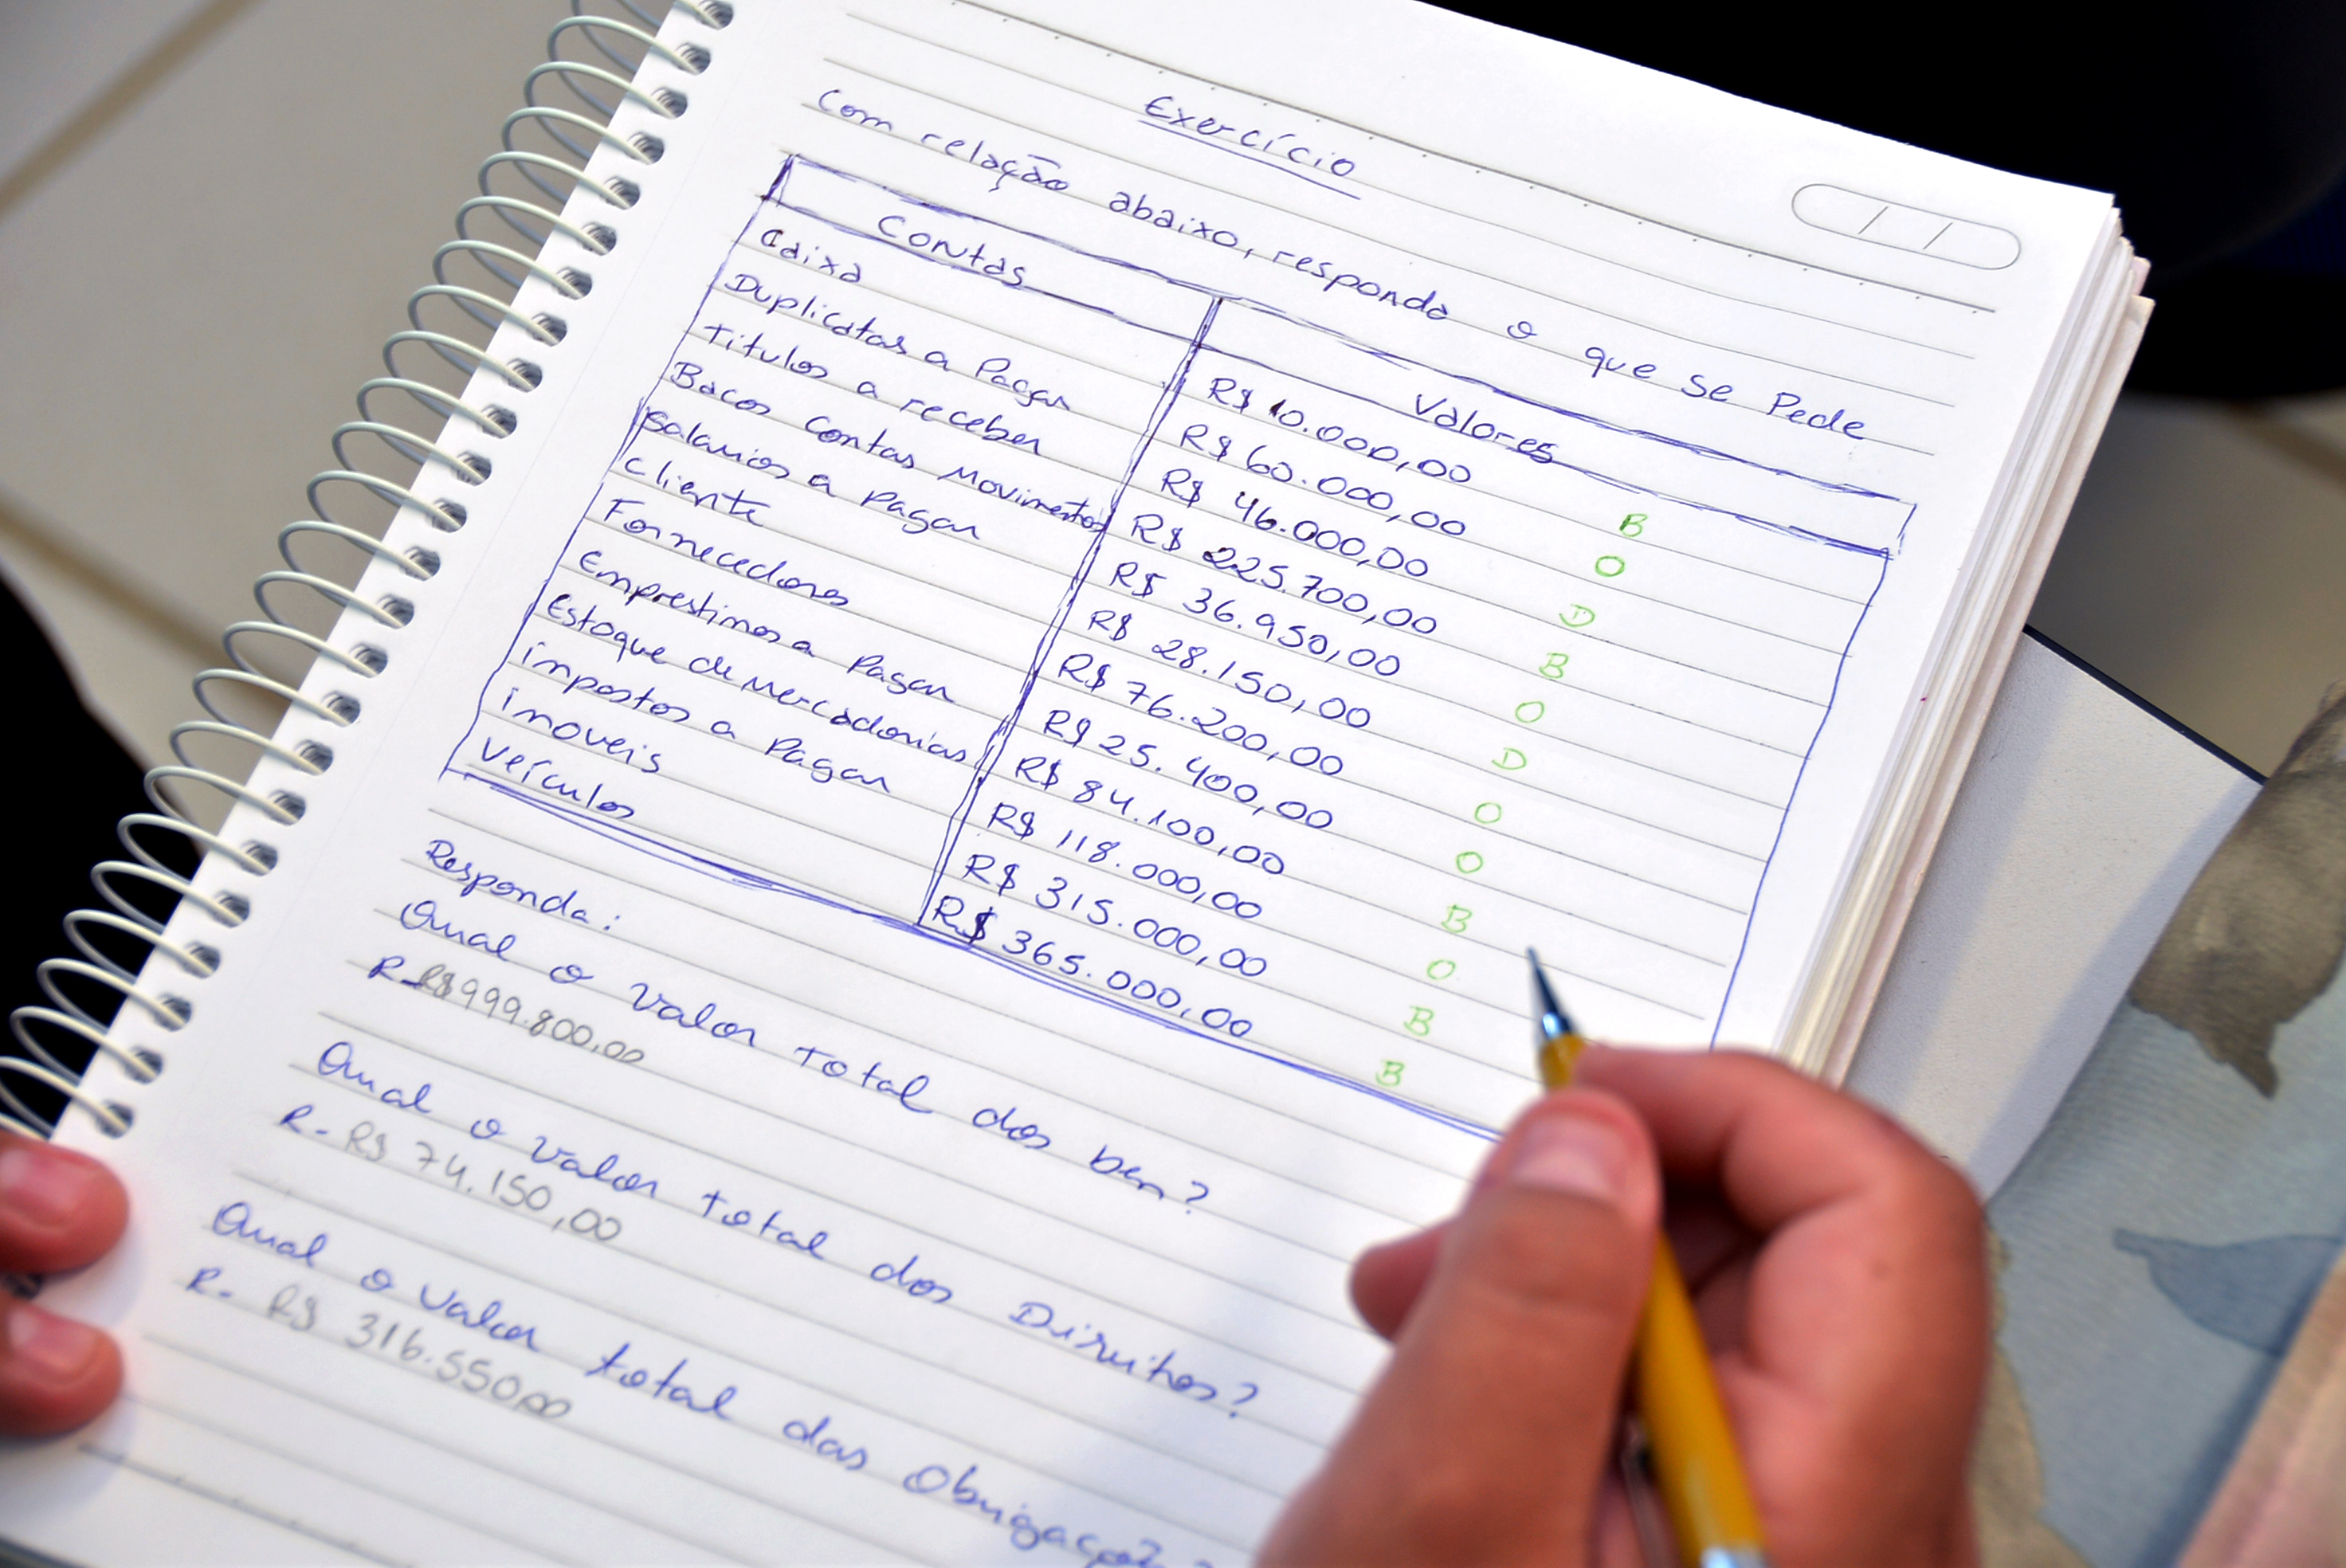 Exercício
Com relação abaixo, responda o que se Pede
Contas Valores
Caixa R$ 10.000,00 B
Duplicatas a Pagar R$ 60.000,00 O
Titulos a receber R$ 46.000,00 D
Bacos Contas Movimentos R$ 225.700,00 B
Salarios a Pagar R$ 36.950,00 O
Cliente R$ 28.150,00 D
Fornecedores R$ 76.200,00 O
Emprestimos a Pagar R$ 25.400,00 O
Estoque de Mercadorias R$ 84.100,00 B
impostos a Pagar R$ 118.000,00 O
imoveis R$ 315.000,00 B
Veículos R$ 365.000,00 B
Responda:
Qual o valor total dos ben?
R- R$ 999.800,00
Qual o valor total dos Direitos?
R- R$ 74.150,00
Qual o valor total das Obrigações?
R- R$ 316.550,00